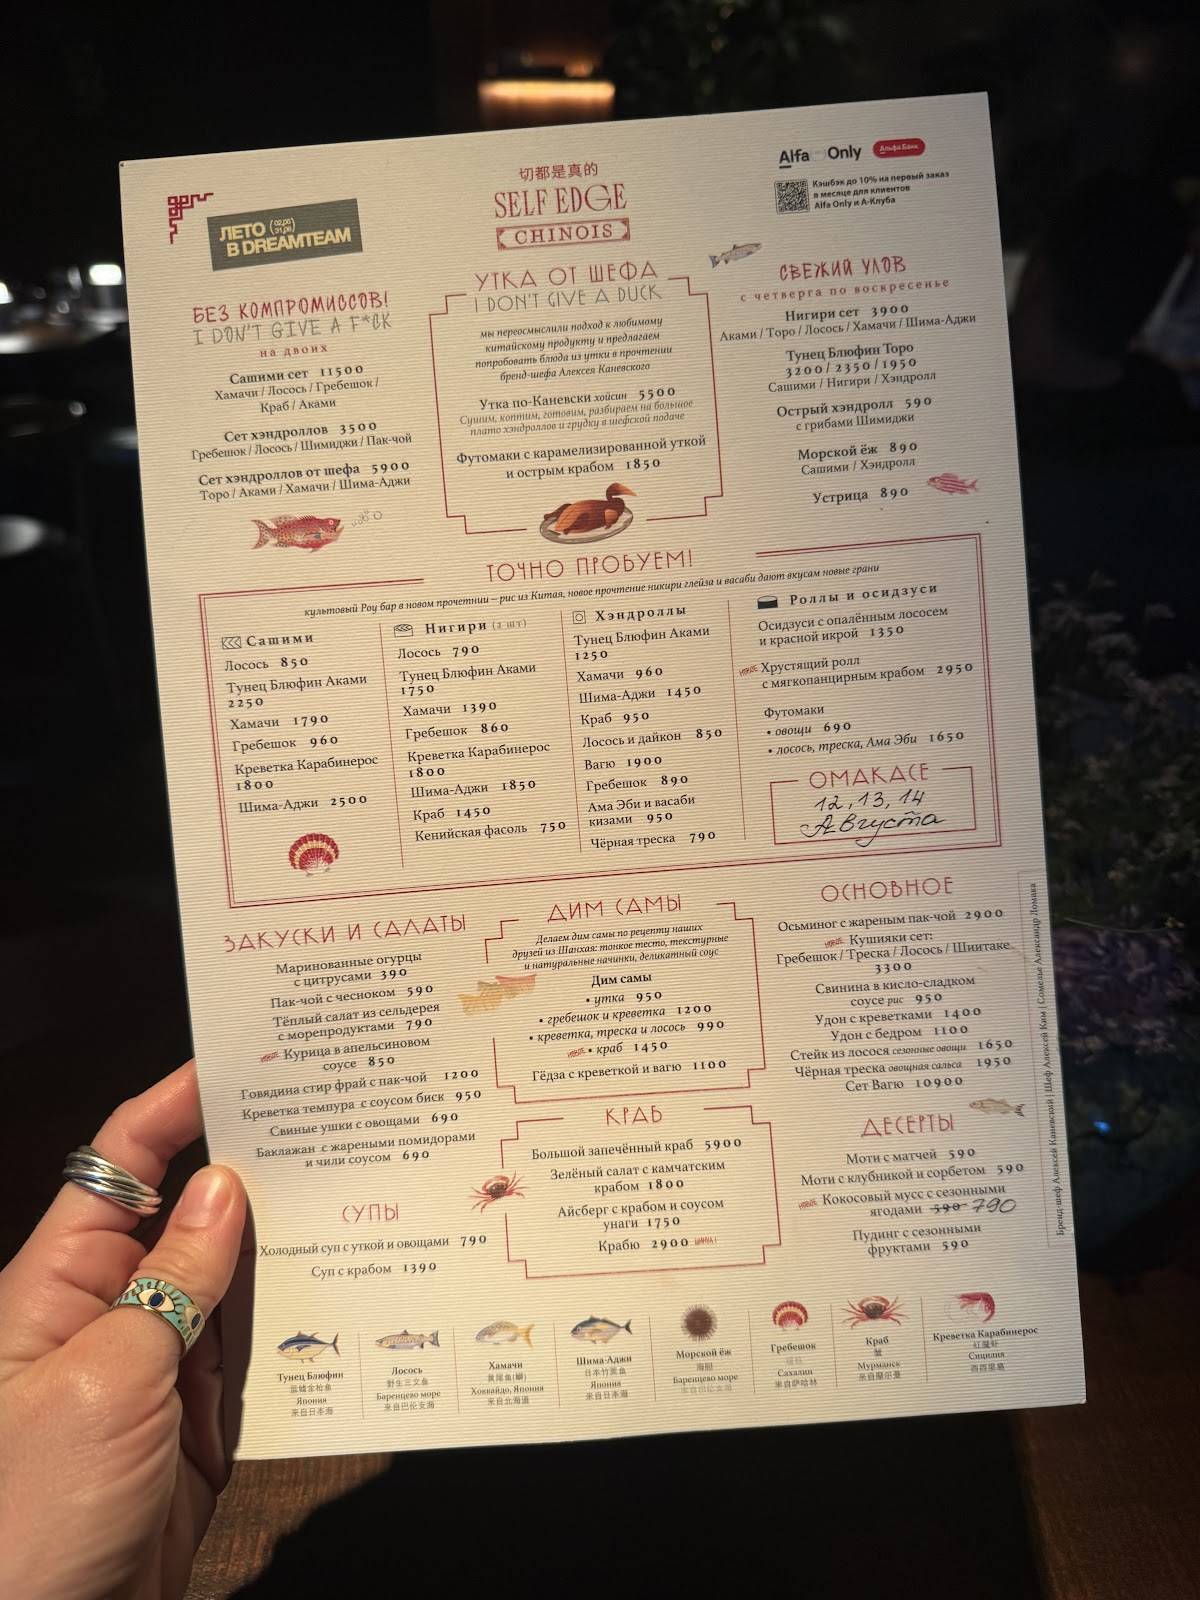 切都是真的
SELF EDGE
CHINOIS
ЛЕТО (02.06 31.08)
В DREAMTEAM
Alfa Only
Альфа Банк
Кэшбэк до 10% на первый заказ
в месяце для клиентов
Alfa Only и А-Клуба
БЕЗ КОМПРОМИССОВ!
I DON'T GIVE A F*CK
на двоих
Сашими сет 11500
Хамачи / Лосось / Гребешок /
Краб / Аками
Сет хэндроллов 3500
Гребешок / Лосось / Шимиджи / Пак-чой
Сет хэндроллов от шефа 5900
Торо / Аками / Хамачи / Шима-Аджи
УТКА ОТ ШЕФА
I DON'T GIVE A DUCK
мы переосмыслили подход к любимому
китайскому продукту и предлагаем
попробовать блюда из утки в прочтении
бренд-шефа Алексея Каневского
Утка по-Каневски хойсин 5500
Сушим, коптим, готовим, разбираем на большое
плато хэндроллов и грудку в шефской подаче
Футомаки с карамелизированной уткой
и острым крабом 1850
СВЕЖИЙ УЛОВ
с четверга по воскресенье
Нигири сет 3900
Аками / Торо / Лосось / Хамачи / Шима-Аджи
Тунец Блюфин Торо
3200 / 2350 / 1950
Сашими / Нигири / Хэндролл
Острый хэндролл 590
с грибами Шимиджи
Морской ёж 890
Сашими / Хэндролл
Устрица 890
ТОЧНО ПРОБУЕМ!
культовый Роу бар в новом прочетнии – рис из Китая, новое прочтение никири глейза и васаби дают вкусам новые грани
Сашими
Лосось 850
Тунец Блюфин Аками
2250
Хамачи 1790
Гребешок 960
Креветка Карабинерос
1800
Шима-Аджи 2500
Нигири (2 шт)
Лосось 790
Тунец Блюфин Аками
1750
Хамачи 1390
Гребешок 860
Креветка Карабинерос
1800
Шима-Аджи 1850
Краб 1450
Кенийская фасоль 750
Хэндроллы
Тунец Блюфин Аками
1250
Хамачи 960
Шима-Аджи 1450
Краб 950
Лосось и дайкон 850
Вагю 1900
Гребешок 890
Ама Эби и васаби
кизами 950
Чёрная треска 790
Роллы и осидзуси
Осидзуси с опалённым лососем
и красной икрой 1350
Хрустящий ролл
с мягкопанцирным крабом 2950
Футомаки
• овощи 690
• лосось, треска, Ама Эби 1650
ОМАКАСЕ
12, 13, 14
Августа
ЗАКУСКИ И САЛАТЫ
Маринованные огурцы
с цитрусами 390
Пак-чой с чесноком 590
Тёплый салат из сельдерея
с морепродуктами 790
Курица в апельсиновом
соусе 850
Говядина стир фрай с пак-чой 1200
Креветка темпура с соусом биск 950
Свиные ушки с овощами 690
Баклажан с жареными помидорами
и чили соусом 690
СУПЫ
Холодный суп с уткой и овощами 790
Суп с крабом 1390
ДИМ САМЫ
Делаем дим самы по рецепту наших
друзей из Шанхая: тонкое тесто, текстурные
и натуральные начинки, деликатный соус
Дим самы
• утка 950
• гребешок и креветка 1200
• креветка, треска и лосось 990
• краб 1450
Гёдза с креветкой и вагю 1100
КРАБ
Большой запечённый краб 5900
Зелёный салат с камчатским
крабом 1800
Айсберг с крабом и соусом
унаги 1750
Крабю 2900
ОСНОВНОЕ
Осьминог с жареным пак-чой 2900
Кушияки сет:
Гребешок / Треска / Лосось / Шиитаке
3300
Свинина в кисло-сладком
соусе рис 950
Удон с креветками 1400
Удон с бедром 1100
Стейк из лосося сезонные овощи 1650
Чёрная треска овощная сальса 1950
Сет Вагю 10900
ДЕСЕРТЫ
Моти с матчей 590
Моти с клубникой и сорбетом 590
Кокосовый мусс с сезонными
ягодами 590 790
Пудинг с сезонными
фруктами 590
Бренд-шеф Алексей Каневский | Шеф Алексей Ким | Сомелье Александр Ломака
Тунец Блюфин
蓝鳍金枪鱼
Япония
来自日本海
Лосось
野生三文鱼
Баренцево море
来自巴伦支海
Хамачи
黄尾鱼(鰤)
Хоккайдо, Япония
来自北海道
Шима-Аджи
日本竹荚鱼
Япония
来自日本海
Морской ёж
海胆
Баренцево море
来自巴伦支海
Гребешок
Сахалин
来自萨哈林
Краб
蟹
Мурманск
来自摩尔曼
Креветка Карабинерос
红魔虾
Сицилия
西西里岛